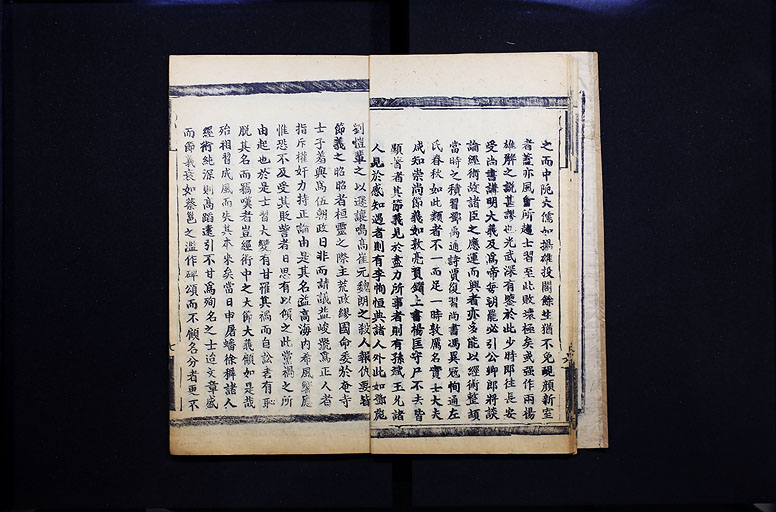 之而中阮大儒如揚雄投閣餘生猶不免靦顔新室
者蓋亦風會所趨士習至此敗壞極矣或强作兩揚
雄解之説甚謬也光武深有鑒於此少時即往長安
受尚書講明大義及爲帝每朝罷必引公卿郎將談
論經術故諸臣之應運而興者亦多能以經術整頓
當時之積習鄧禹通詩賈復習尚書馮異冦恂通左
氏春秋如此類者不一而足一時敦厲名實士大夫
咸知崇尚節義如敦亮質鎖上書楊匡守尸不去皆
顯著者其節義見於盡力所事者則有孫斌王允諸
人見於感知遇者則有李恂恒典諸人外此如鄧彪
劉愷輩之以遜讓鳴高崔元魏朗之殺人報仇要皆
節義之昭昭者桓靈之際主荒政繆國命委於奄寺
士子羞與爲伍朝政日非而請議益峻號爲正人者
指斥權奸力持正論由是其名益高海内希風響應
惟恐不及受其貶訾者日思有以傾之此黨禍之所
由起也於是士習大變有甘罹其禍而自訟耒有耻
脱其名而竊嘆者豈經術中之大節大義顧如是哉
殆相習成風而失其本來矣當日申屠蟠徐穉諸人
經術純深則高蹈遠引不甘爲殉名之士迨文章盛
而節義衰如蔡邕之濫作碑頌而不顧名分者更不